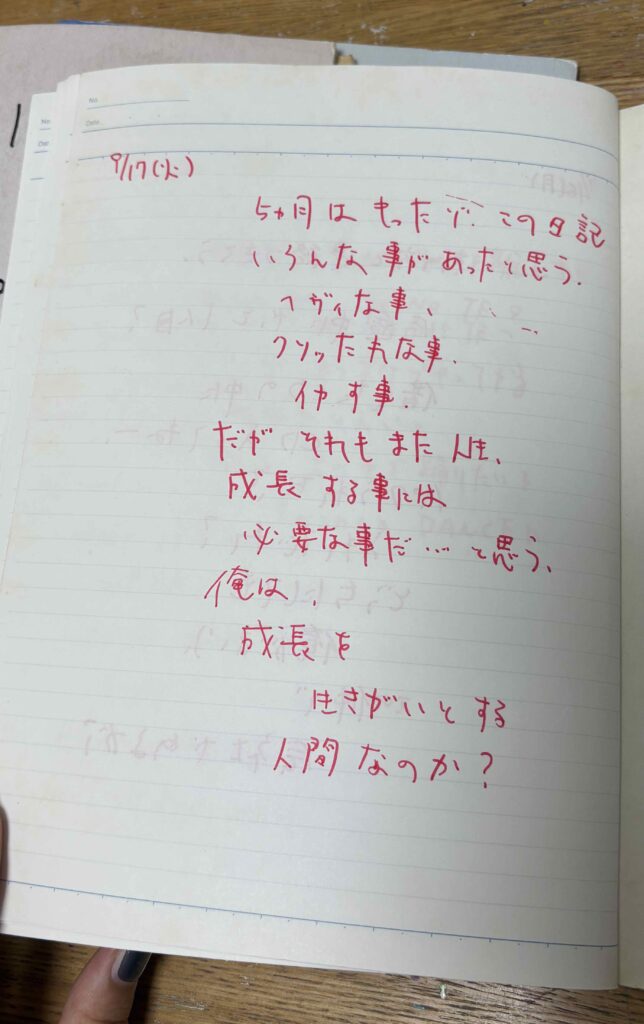 No.
Date
No
Dat
9/17(火)
5ヵ月はもったゾ。この日記
いろんな事があったと思う.
ヘヴィな事、
クソッたれな事.
イヤす事.
だがそれもまた人生、
成長する事には
必要な事だ…と思う、
俺は、
成長を
生きがいとする
人間なのか?